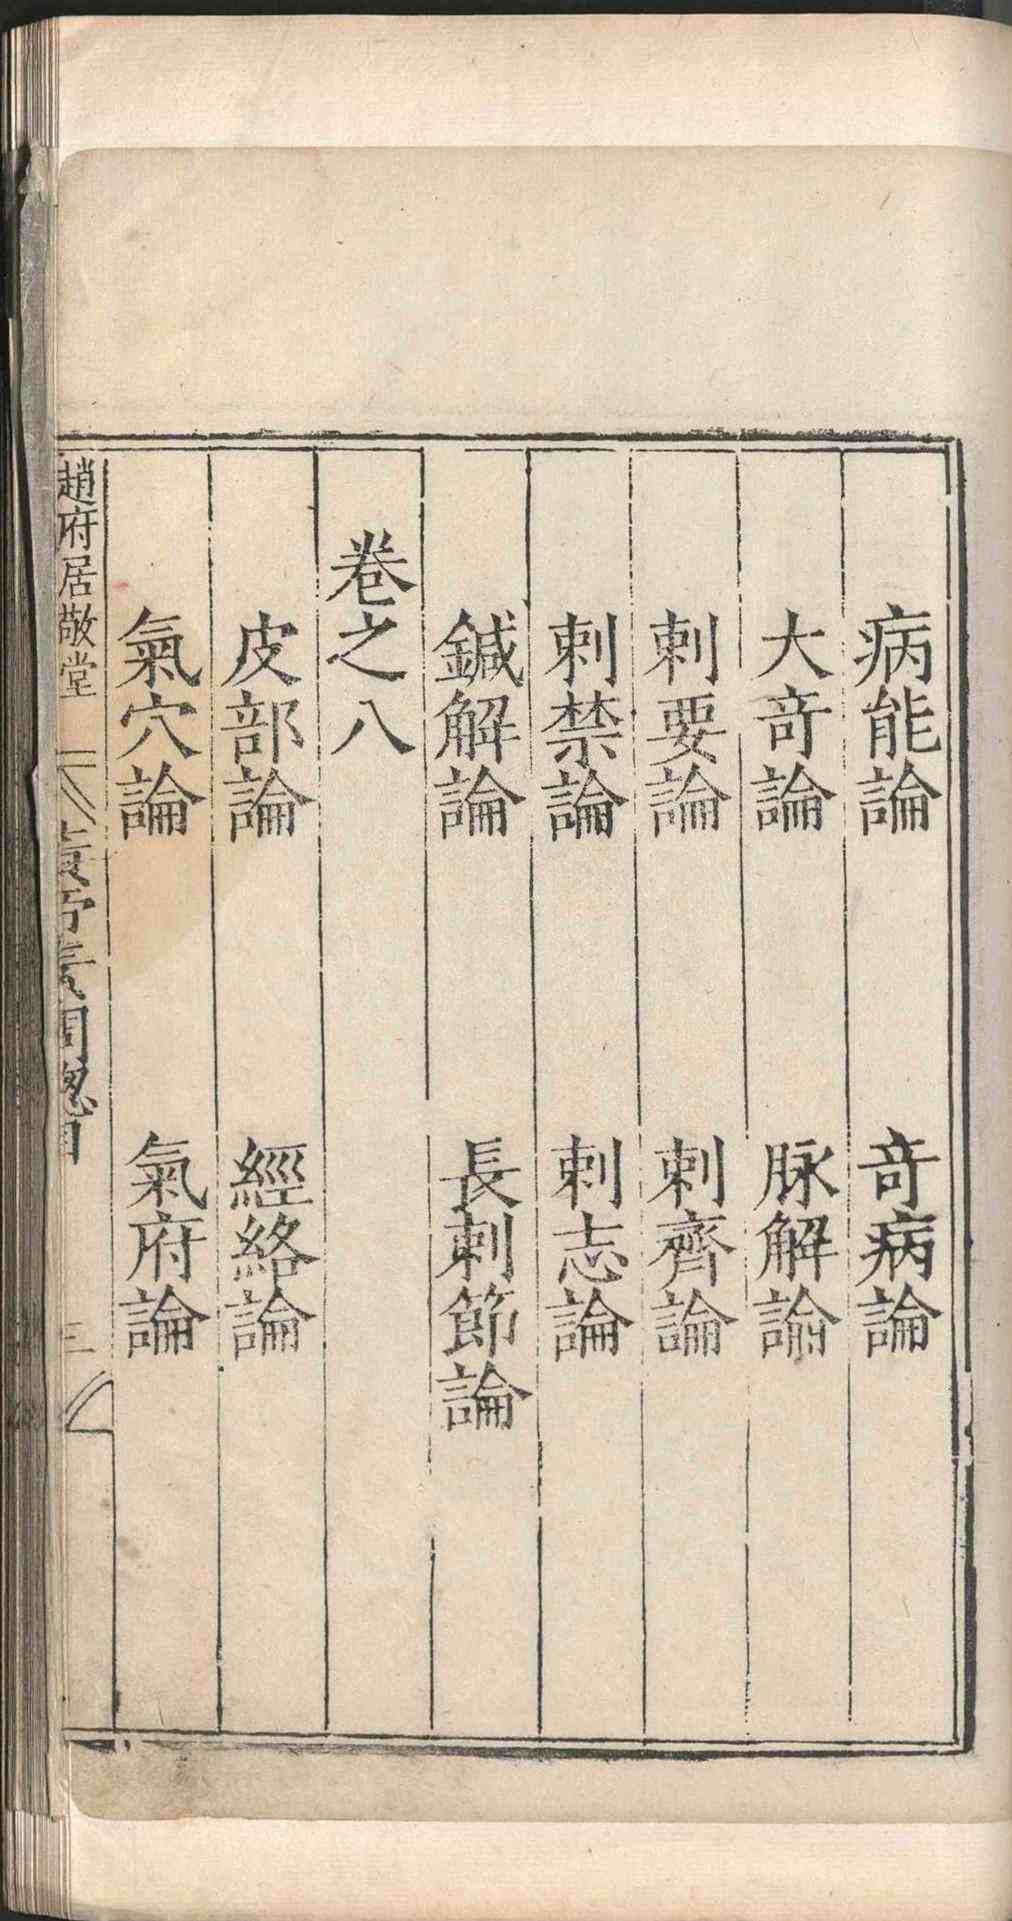 病能論 竒病論
大竒論 脉解論
刺要論 刺齊論
刺禁論 刺志論
鍼解論 長刺節論
卷之八
皮部論 經絡論
氣穴論 氣府論
趙府居敬堂
總目
三